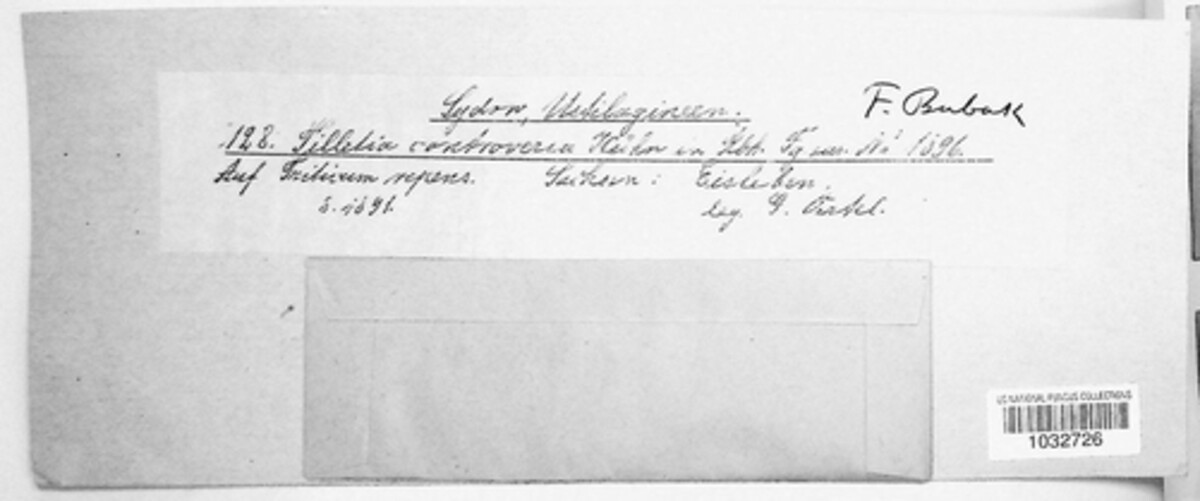 Sydow, Ustilagineen. F. Bubák
128. Tilletia controversa Kühn in Rbh. Fg eur. Nº 1896.
Auf Triticum repens. Sachsen: Eisleben.
1891. leg. G. Oertel.
US NATIONAL FUNGUS COLLECTIONS
1032726